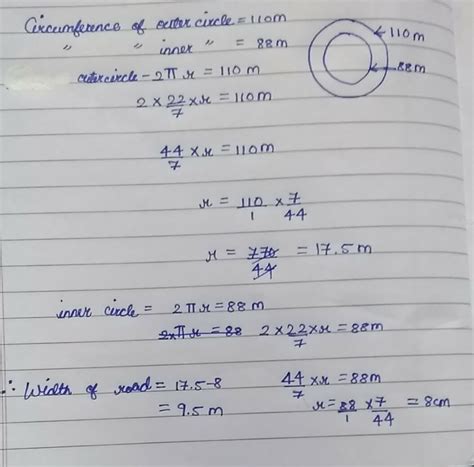 Circumference of outer circle = 110m
" " inner " = 88m
110m
88m
outer circle - 2πr = 110m
2 × 22/7 × r = 110m
44/7 × r = 110m
r = 110/1 × 7/44
r = 770/44 = 17.5 m
inner circle = 2πr = 88m
2×πr = 88 2 × 22/7 × r = 88m
44/7 × r = 88m
r = 88/1 × 7/44 = 8cm
∴ Width of road = 17.5-8
= 9.5 m